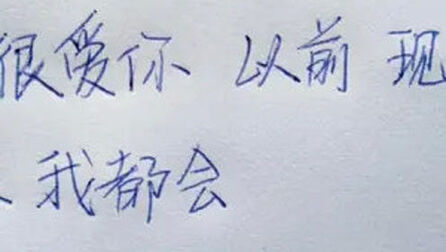 很爱你 以前 现
、我都会